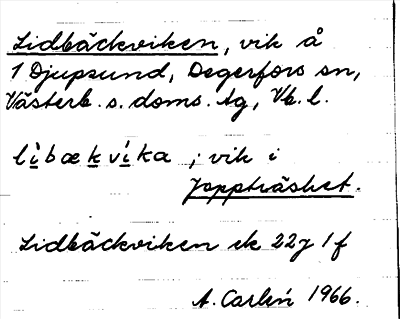 Lidbäckviken, vik å
1 Djupsund, Degerfors sn,
Västerb. s. doms. tg, Vb. l.
libækvika ; vik i
Joppträsket.
Lidbäckviken ek 22J 1f
A. Carlén 1966.